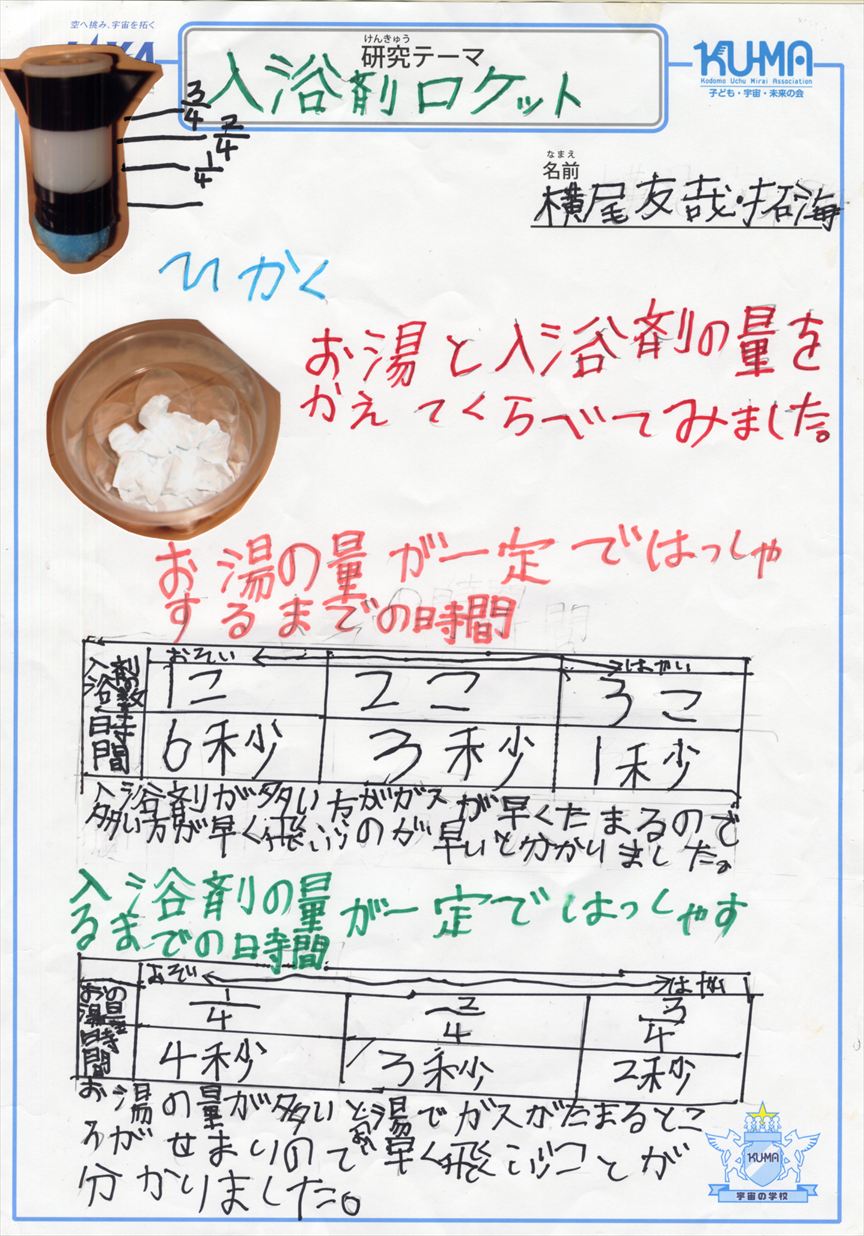 空へ挑み、宇宙を拓く
けんきゅう
研究テーマ
入浴剤ロケット
KU-MA
Kodomo Uchu Mirai Association
子ども・宇宙・未来の会
3/4
2/4
1/4
なまえ
名前
横尾友哉・拓海
ひかく
お湯と入浴剤の量を
かえてくらべてみました。
お湯の量が一定ではっしゃ
するまでの時間
おそい ←→ はやい
入浴剤の数 1こ 2こ 3こ
時間 6秒 3秒 1秒
入浴剤が多い方がガスが早くたまるので
多い方が早く飛ぶのが早いと分かりました。
入浴剤の量が一定ではっしゃす
るまでの時間
おそい ←→ はやい
お湯の量 1/4 2/4 3/4
時間 4秒 3秒 2秒
お湯の量が多いとお湯でガスがたまるとこ
ろがせまいので早く飛ぶことが
分かりました。
KUMA
宇宙の学校